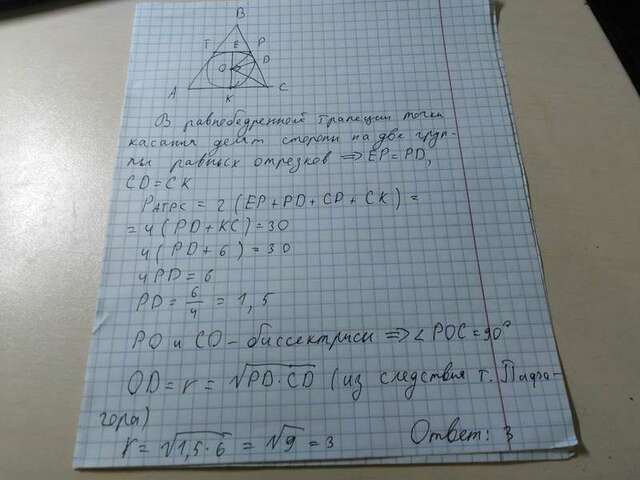 B
T E P
O D
A K C
В равнобедренной трапеции точки
касания делят стороны на две груп-
пы равных отрезков => EP = PD,
CD = CK
PАТРС = 2 (EP + PD + CD + CK) =
= 4 (PD + KC) = 30
4 (PD + 6) = 30
4 PD = 6
PD = 6/4 = 1,5
PO и CO - биссектрисы => ∠ POC = 90°
OD = r = √PD · CD (из следствия т. Пифа-
гора)
r = √1,5 · 6 = √9 = 3 Ответ: 3